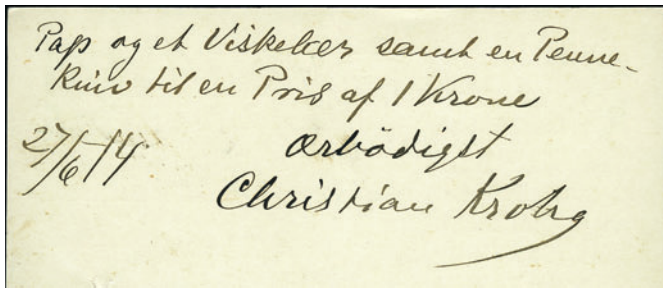 Pap og et Viskelær samt en Penne-
kniv til en Pris af 1 Krone
27/6-14 Ærbödigst
Christian Krohg